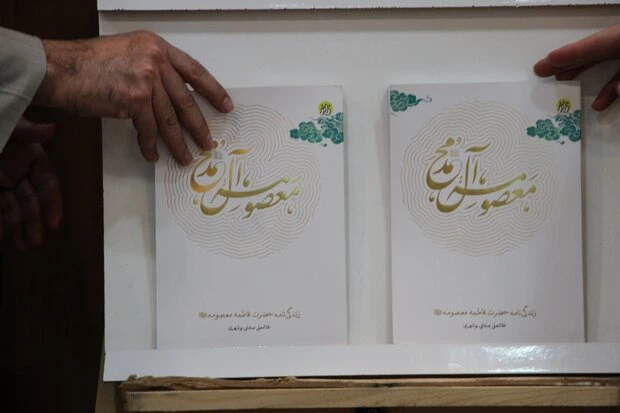 معصومه آل محمد
زندگی‌نامه حضرت فاطمه معصومه
غلامعلی صفای بوشهری
معصومه آل محمد
زندگی‌نامه حضرت فاطمه معصومه
غلامعلی صفای بوشهری